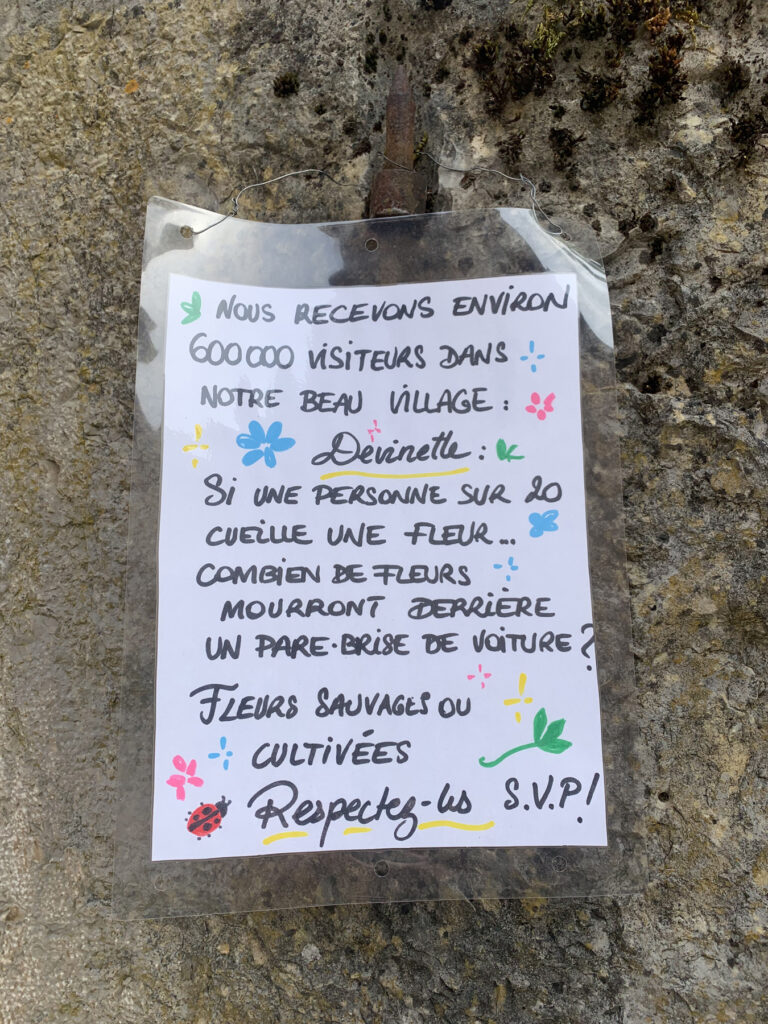 NOUS RECEVONS ENVIRON
600 000 VISITEURS DANS
NOTRE BEAU VILLAGE :
Devinette :
SI UNE PERSONNE SUR 20
CUEILLE UNE FLEUR...
COMBIEN DE FLEURS
MOURRONT DERRIÈRE
UN PARE-BRISE DE VOITURE ?
FLEURS SAUVAGES OU
CULTIVÉES
Respectez-les S.V.P!